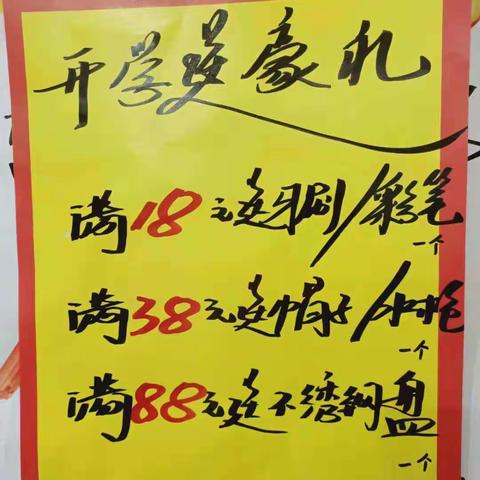 开学送豪礼
满18元送牙刷/彩笔
一个
满38元送帽子/水枪
一个
满88元送不锈钢盘
一个